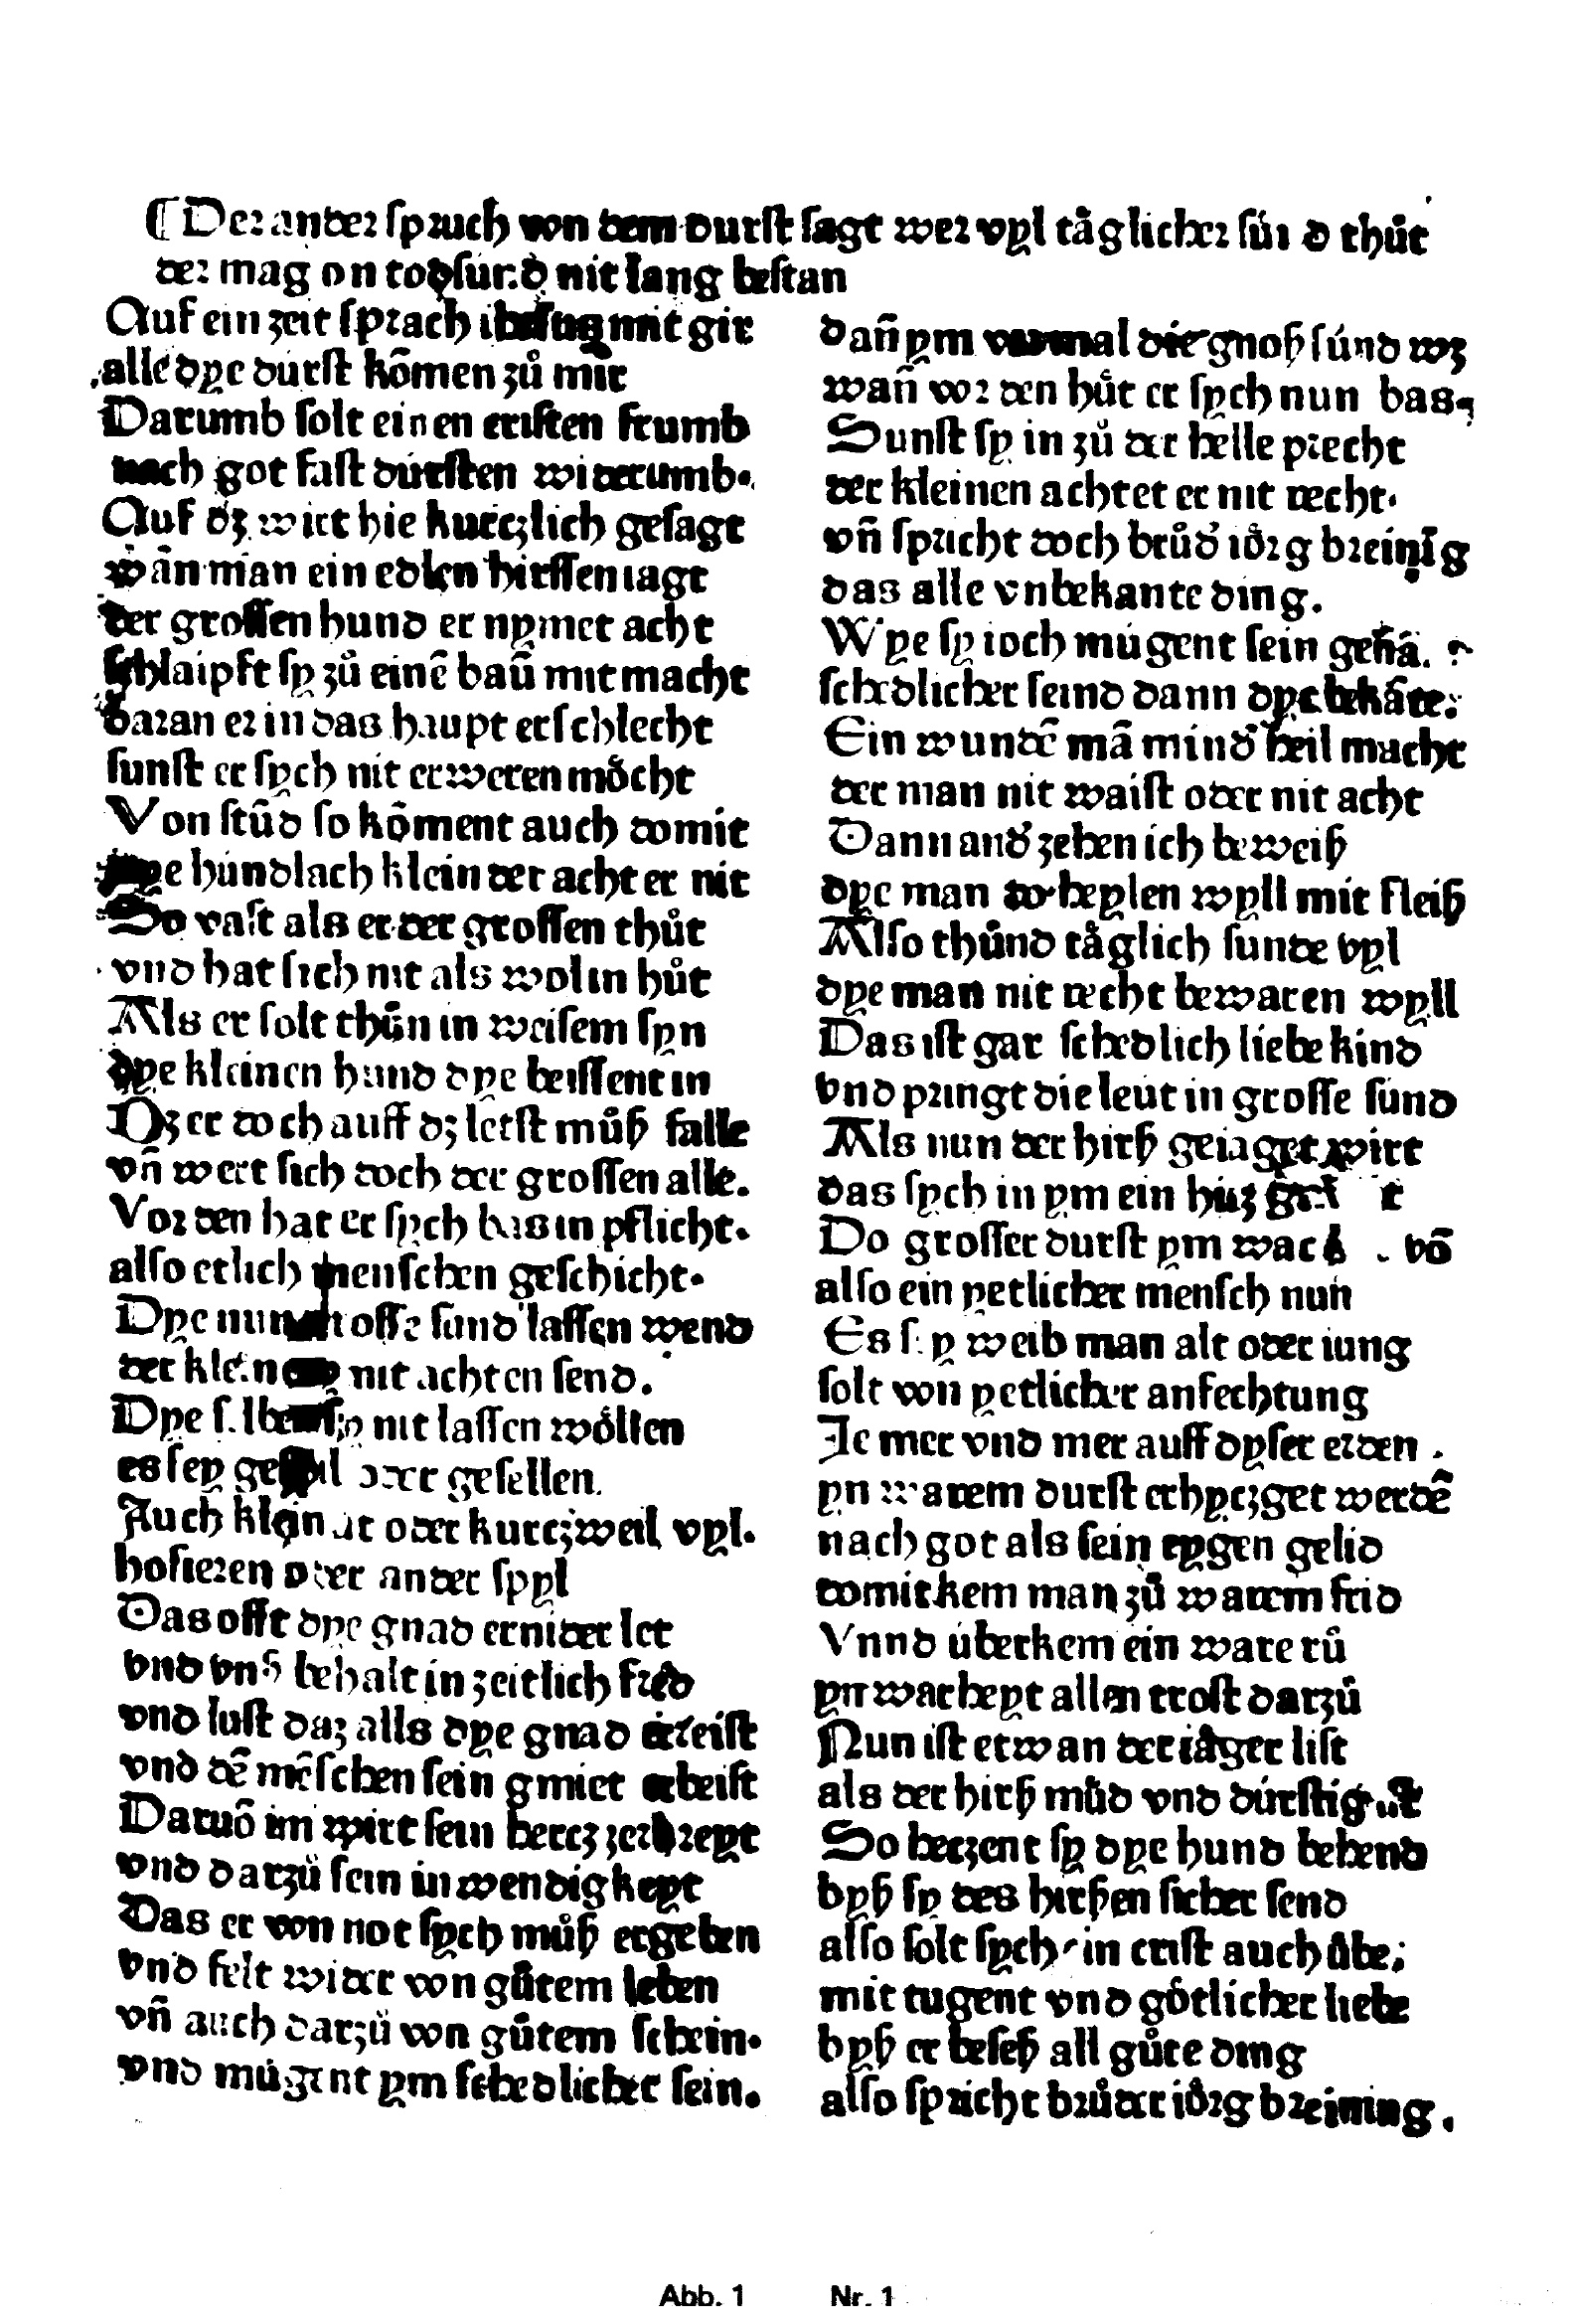 ¶ Der ander spruch von dem durst sagt wer vyl tåglicher sünd thůt
der mag on todsünd nit lang bestan
Auf ein zeit sprach ihesus mit gir
alle dye durst kõmen zů mir
Darumb solt einen cristen frumb
nach got fast dürsten widerumb.
Auf dz wirt hie kurczlich gesagt
wañ man ein edlen hirssen iagt
der grossen hund er nymet acht
schlaipft sy zů einẽ baũ mit macht
daran er in das haupt erschlecht
sunst er sych nit erweren mӧcht
Von stũd so kõment auch domit
dye hündlach klein der acht er nit
So vast als er der grossen thůt
vnd hat sich nit als wol in hůt
Als er solt thůn in weisem syn
dye kleinen hund dye beissent in
Dz er doch auff dz letst můß falle
vñ wert sich doch der grossen alle.
Vor den hat er sych bas in pflicht.
also etlich menschen geschicht.
Dye nun grosse sünd lassen wend
der kleinen nit achten send.
Dye selben sy nit lassen wӧllen
es sey gespil oder gesellen.
Auch kleinat oder kurczweil vyl.
hofieren oder ander spyl
Das offt dye gnad ernider let
vnd vnß behalt in zeitlich fred
vnd lust daz alls dye gnad erleist
vnd dẽ mẽschen sein gmiet erbeist
Daruõ im wirt sein hercz zerdreyt
vnd darzů sein inwendigkeyt
Das er von not sych můß ergeben
vnd felt wider von gůtem leben
vñ auch darzů von gůtem schein.
vnd mügent ym schedlicher sein.
dañ ym vormal die groß sünd wz
wañ vor den hůt er sych nun bas.
Sunst sy in zů der helle precht
der kleinen achtet er nit recht.
vñ spricht doch brůd' iӧrg breinĩg
das alle vnbekante ding.
Wye sy ioch mügent sein genã.
schedlicher seind dann dye bekãte.
Ein wundẽ mã mind' heil macht
der man nit waist oder nit acht
Dann and' zehen ich beweiß
dye man do heylen wyll mit fleiß
Also thůnd tåglich sunde vyl
dye man nit recht bewaren wyll
Das ist gar schedlich liebe kind
vnd pringt die leut in grosse sünd
Als nun der hirß geiaget wirt
das sych in ym ein hicz
Do grosser durst ym võ
also ein yetlicher mensch nun
Es sey weib man alt oder iung
solt von yetlicher anfechtung
Je mer vnd mer auff dyser erden.
yn warem durst erhyczget werdẽ
nach got als sein eygen gelid
domit kem man zů warem frid
Vnnd überkem ein ware rů
yn warheyt allen trost darzů
Nun ist etwan der iåger list
als der hirß můd vnd dürstig ist
So heczent sy dye hund behend
byß sy des hirßen sicher send
also solt sych in crist auch ůbe;
mit tugent vnd gӧtlicher liebe
byß er beseß all gůte ding
also spricht brůder iӧrg breining.
Abb. 1 Nr. 1